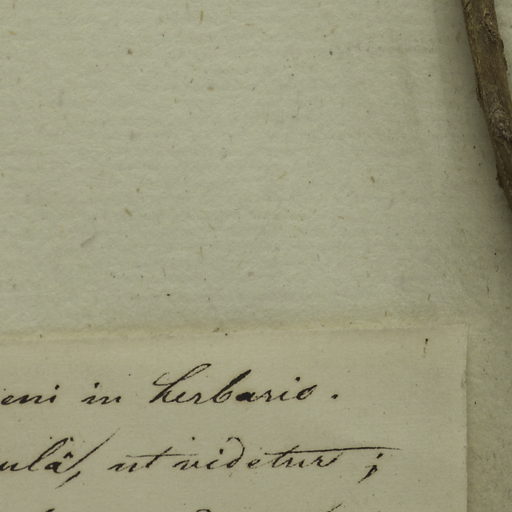 eni in herbario.
ulâ, ut videtur;